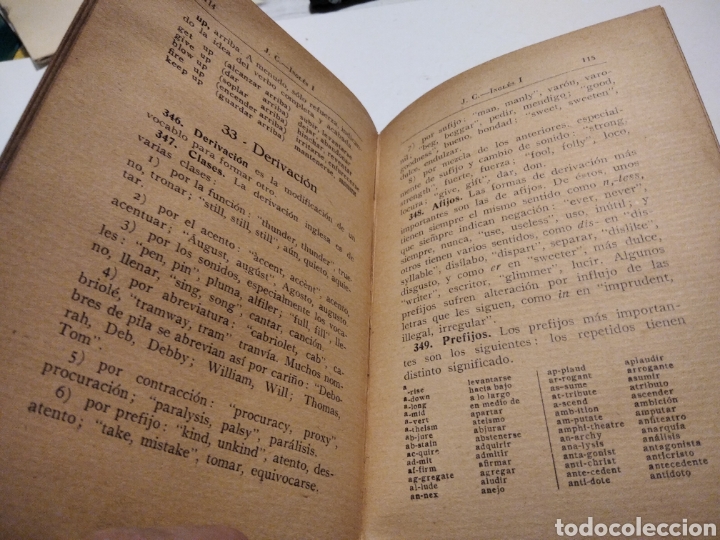 114
J. C.—INGLÉS I
up, arriba. A menudo, sólo refuerza, impri-
do la idea del verbo
get up (alcanzar arriba)
give up (dar arriba)
blow up (soplar arriba)
fire up (encender arriba)
keep up (guardar arriba)
33 - Derivación
346. Derivación es la modificación de un
vocablo para formar otro.
347. Clases. La derivación inglesa es de
varias clases:
1) por la función: "thunder, thunder" true-
no, tronar; "still, still, still"; aún, quieto, aquie-
tar.
2) por el acento: "àccent, accènt", acento,
acentuar; "August, augúst", Agosto, augusto.
3) por los sonidos, especialmente las voca-
les: "pen, pin", pluma, alfiler; "full, fill", lle-
no, llenar, "sing, song", cantar, canción.
4) por abreviatura: "cabriolet, cab", ca-
briolé, "tramway, tram" tranvía. Muchos nom-
bres de pila se abrevian así por cariño: "Debo-
rah, Deb, Debby; William, Will; Thomas,
Tom".
5) por contracción: "procuracy, proxy",
procuración; "paralysis, palsy", parálisis.
6) por prefijo: "kind, unkind", atento, des-
atento; "take, mistake", tomar, equivocarse.
J. C.—INGLÉS I
115
7) por sufijo, "man, manly", varón, varo-
nil; "beg, beggar", pedir, mendigo; "good,
goodness", bueno, bondad: "sweet, sweeten",
dulce, endulzar.
8) por mezcla de los anteriores, especial-
mente de sufijo y cambio de sonido: "strong,
strength", fuerte, fuerza; "fool, folly", loco,
locura; "give, gift", dar, don.
348. Afijos. Las formas de derivación más
importantes son las de afijos. De éstos, unos
tienen siempre el mismo sentido como n, less,
que siempre indican negación: "ever, never",
siempre, nunca, "use, useless", uso, inútil; y
otros tienen varios sentidos como dis— en "dis-
syllable", disílabo, "dispart", separar, "dislike",
disgusto, y como er en "sweeter", más dulce,
"writer", escritor, "glimmer", lucir. Algunos
prefijos sufren alteración por influjo de las
letras que les siguen, como in en "imprudent,
illegal, irregular".
349. Prefijos. Los prefijos más importan-
tes son los siguientes: los repetidos tienen
distinto significado.
a-rise levantarse ap-plaud aplaudir
a-down hacia bajo ar-rogant arrogante
a-long a lo largo as-sume asumir
a-mid en medio de at-tribute atributo
a-vert apartar a-scend ascender
a-theism ateísmo amb-ition ambición
ab-jure abjurar am-putate amputar
ab-stain abstenerse amphi-theatre anfiteatro
ac-quire adquirir an-archy anarquía
ad-mit admitir ana-lysis análisis
af-firm afirmar anta-gonist antagonista
ag-gregate agregar anti-christ anticristo
al-lude aludir ante-cedent antecedente
an-nex anejo anti-dote antídoto
todocoleccion